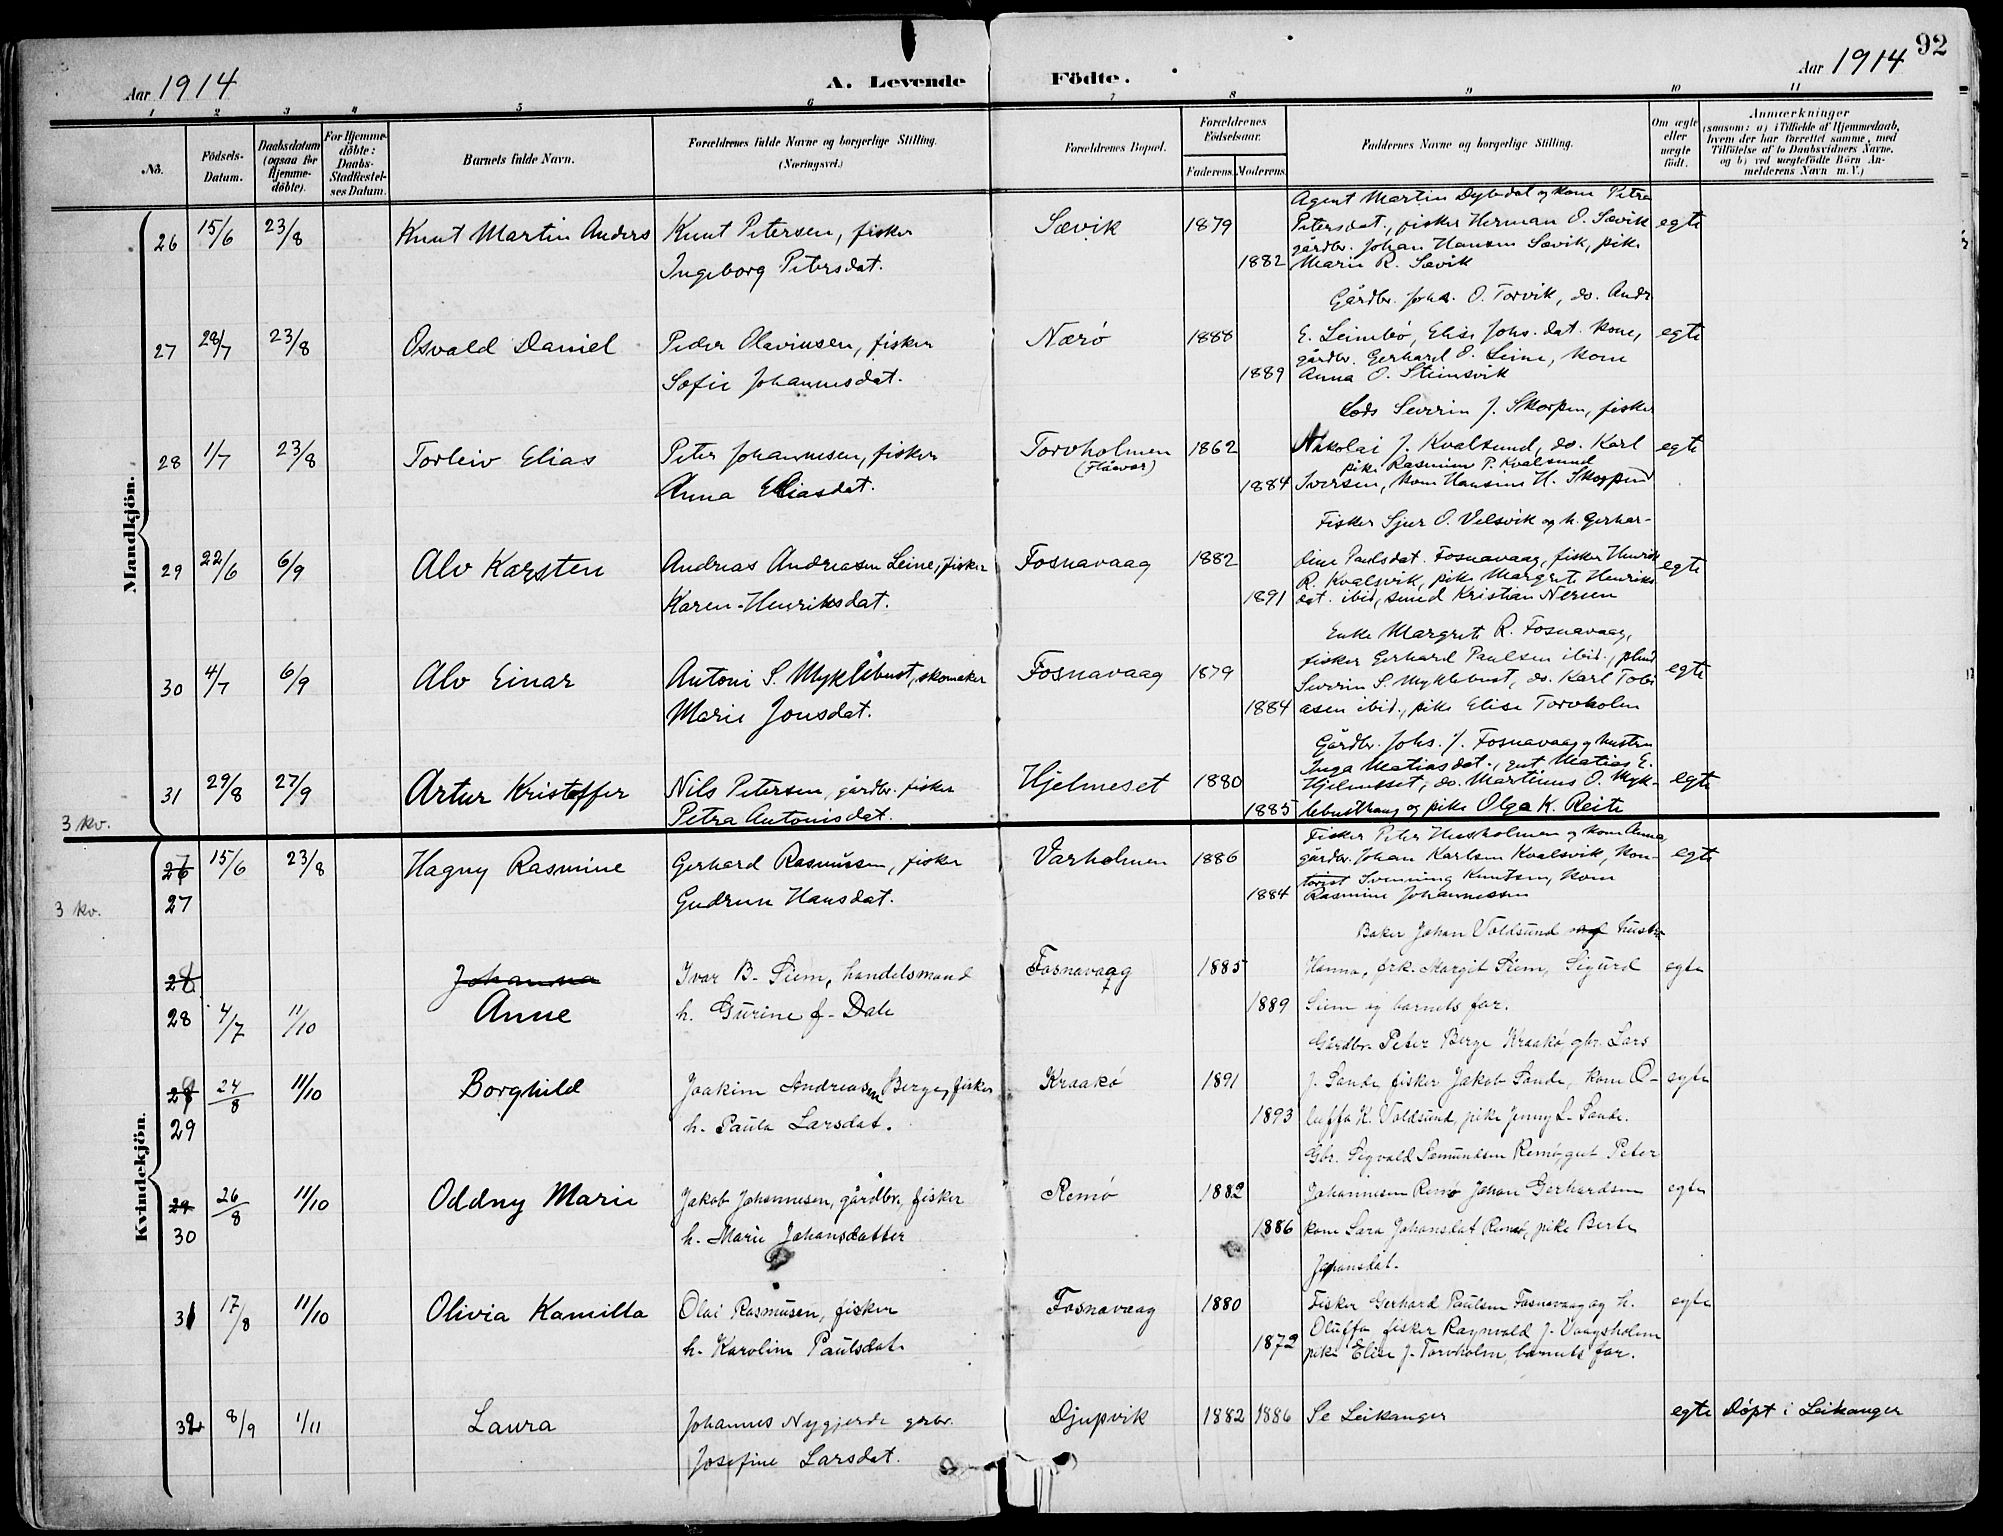 92
Aar 1914
A. Levende Födte.
Aar 1914
1 2 3 4 5 6 7 8 9 10 11
No.
Födsels-Datum.
Daabsdatum (ogsaa for Hjemmedöbte).
For Hjemmedöbte: Daabs-Stadfæstelses Datum.
Barnets fulde Navn.
Forældrenes fulde Navne og borgerlige Stilling.
(Næringsvei.)
Forældrenes Bopæl.
Forældrenes Födselsaar.
Faderens. Moderens.
Faddernes Navne og borgerlige Stilling.
Om ægte eller uægte födt.
Anmærkninger
(saasom: a) i Tilfælde af Hjemmedaab,
hvem der har forrettet samme, med
Tilföielse af to Daabsvidners Navne.
og b) ved uægtefödte Börn An-
melderens Navn m. V.)
Mandkjön.
Agent Martin Dybdal og kone Petra
26 15/6 23/8 Knut Martin Anders Knut Petersen, fisker Sævik 1879 Petersdat., fisker Herman O. Sævik egte
gårdbr. Johan Hansen Sævik, pike
Ingeborg Petersdat. 1882 Marie R. Sævik
Gårdbr. Johs. O. Torvik, do. Andr.
27 28/7 23/8 Osvald Daniel Peder Olavinsen, fisker Nærø 1888 E. Leinebø, Elise Johs. dat. kone, egte
gårdbr. Gerhard O. Leine, kone
Sofie Johannesdat. 1889 Anna O. Steinsvik
Lods Severin J. Skorpen, fisker
28 1/7 23/8 Torleiv Elias Peter Johannesen, fisker Torvholmen 1862 Nikolai J. Kvalsund, do. Karl egte
(Flåvær) pike Rasmine P. Kvalsund
Anna Eliasdat. 1884 Iversen, kone Hansine H. Skorpen
Fisker Sjur O. Velsvik og h. Gerhar-
29 22/6 6/9 Alv Karsten Andreas Andreasen Leine, fisker Fosnavaag 1882 dine Paulsdat. Fosnavaag, fisker Henrik egte
R. Kvalsvik, pike Margrete Henriks
Karen Henriksdat. 1891 dat. ibid, smed Kristian Nersen
Enke Margrete R. Fosnavaag,
fisker Gerhard Paulsen ibid.,
30 4/7 6/9 Alv Einar Antoni S. Myklebust, skomaker Fosnavaag 1879 Severin S. Myklebust, do. Karl Tobi egte
Marie Jonsdat. 1884 asen ibid., pike Elise Torvholm
Gårdbr. Johs. J. Fosnavaag og hustru
Inga Matiasdat., gut Matias E.
31 29/8 27/9 Artur Kristoffer Nils Petersen, gårdbr. fisker Hjelmeset 1880 Hjelmeset, do. Martinus O. Myk- egte
Petra Antonisdat. 1885 lebusthaug og pike Olga K. Reite
3 kv.
Kvindekjön.
Fisker Peter Husholmen og kone Anna
26 15/6 23/8 Hagny Rasmine Gerhard Rasmussen, fisker Varholmen 1886 gårdbr. Johan Karlsen Kvalsvik, kon- egte
torist Svenning Knutsen, kone
3 kv. 27 Gudrun Hansdat. 1884 Rasmine Johannessen
Baker Johan Voldsund og hustru
Johanna Ivar B. Siem, handelsmand Fosnavaag 1885 Hanna, frk. Margit Siem, Sigurd egte
28 4/7 11/10 Anne h. Gurine f. Dale 1889 Siem og barnets far.
Gårdbr. Peter Berge Kraakø, gbr. Lars
24/8 11/10 Borghild Joakim Andreasen Berge, fisker Kraakø 1891 J. Sande, fisker Jakob Sande, kone O- egte
29 h. Paula Larsdat. 1893 luffa K. Voldsund, pike Jenny L. Sande.
Gbr. Sigvald Samundsen Remø, gut Peter
29 26/8 11/10 Oddny Marie Jakob Johannesen, gårdbr., fisker Remø 1882 Johannesen Remø Johan Gerhardsen egte
30 h. Marie Johansdatter 1886 kone Sara Johansdat Remø, pike Berte
Johansdat.
31 17/8 11/10 Olivia Kamilla Olai Rasmusen, fisker Fosnavaag 1880 Fisker Gerhard Paulsen Fosnavaag og h. egte
Oluffa fisker Ragnvald J. Vaagsholm
h. Karoline Paulsdat. 1872 pike Elise J. Torvholm, barnets far.
32 8/9 1/11 Laura Johannes Nygjerde gårbr. Djupvik 1882 1886 Se Leikanger egte Døpt i Leikanger
Josefine Larsdat.